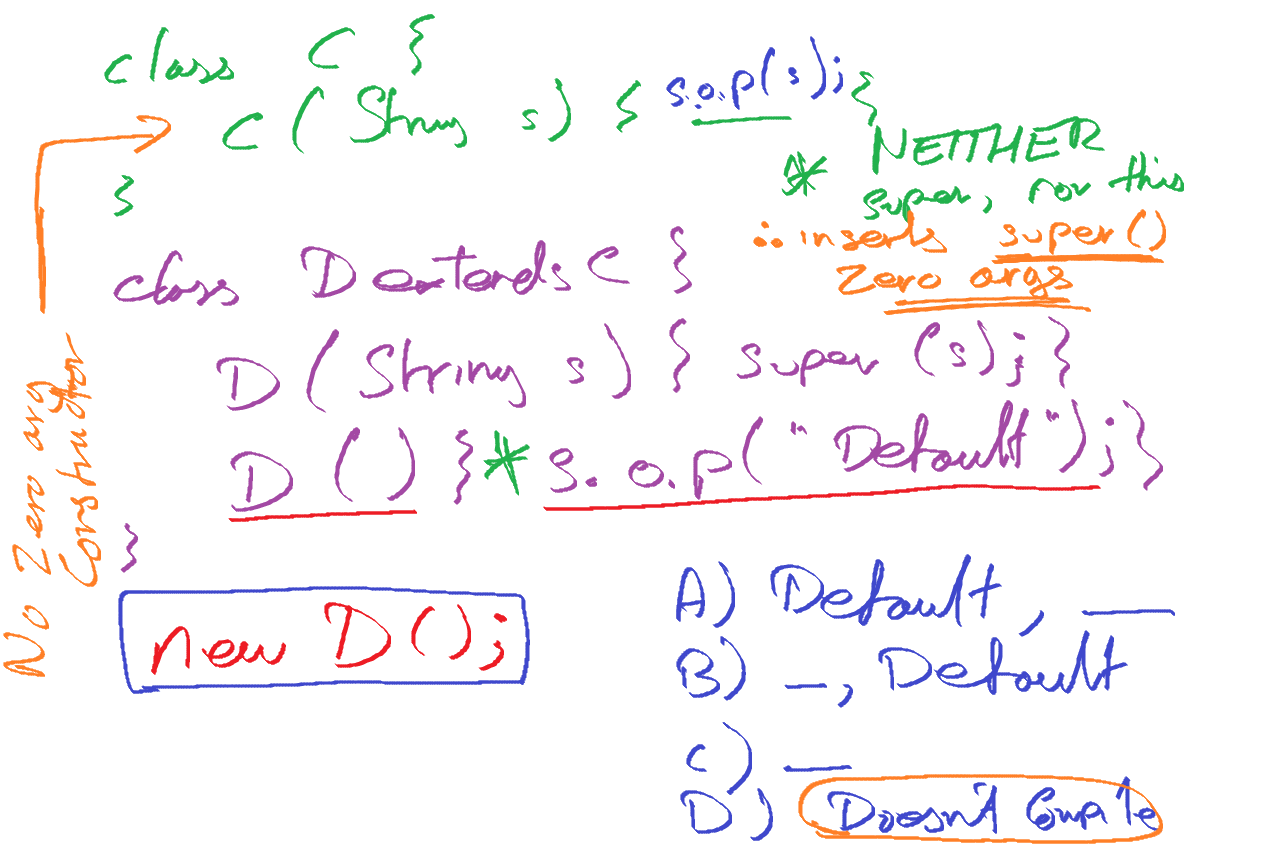 class C {
C (String s) { s.o.p(s); }
}
* NEITHER
super, nor this
∴ inserts super()
Zero args
class D extends C {
D (String s) { super (s); }
D () { * S.o.p("Default"); }
}
No Zero arg
Constructor
new D();
A) Default, __
B) _, Default
C) __
D) Doesn't Compile